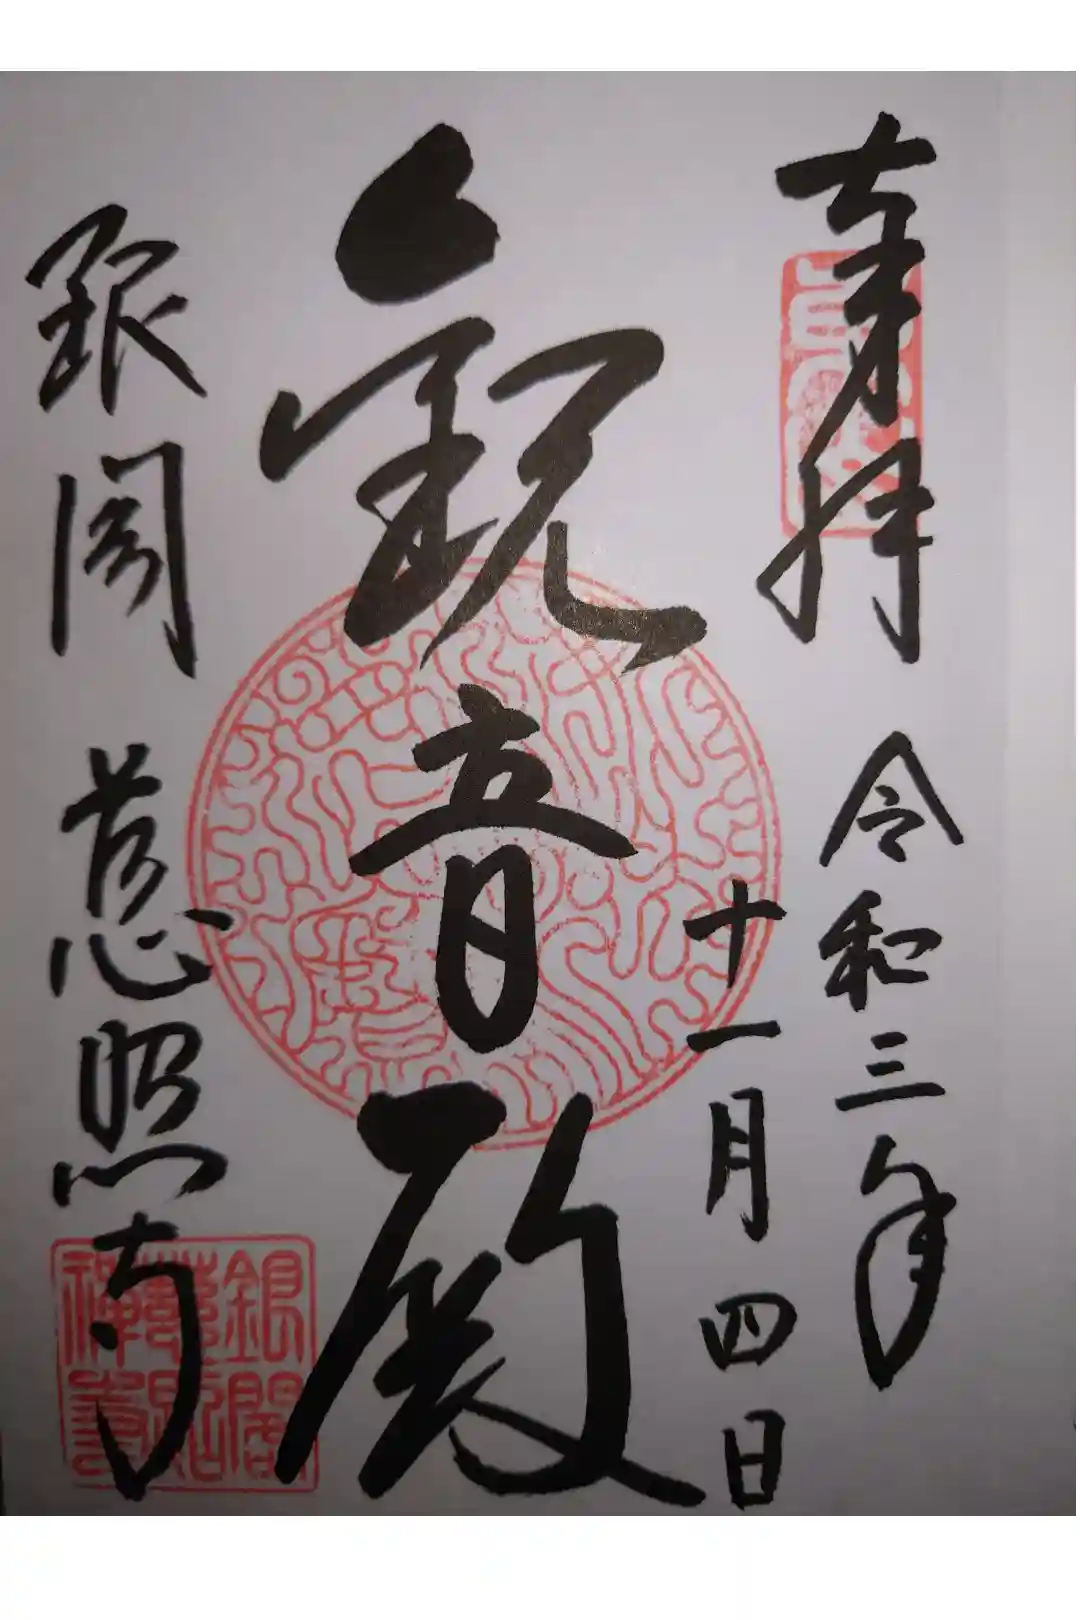 奉拝
令和三年
十一月四日
観音殿
銀閣 慈照寺
銀閣
慈照
禅寺